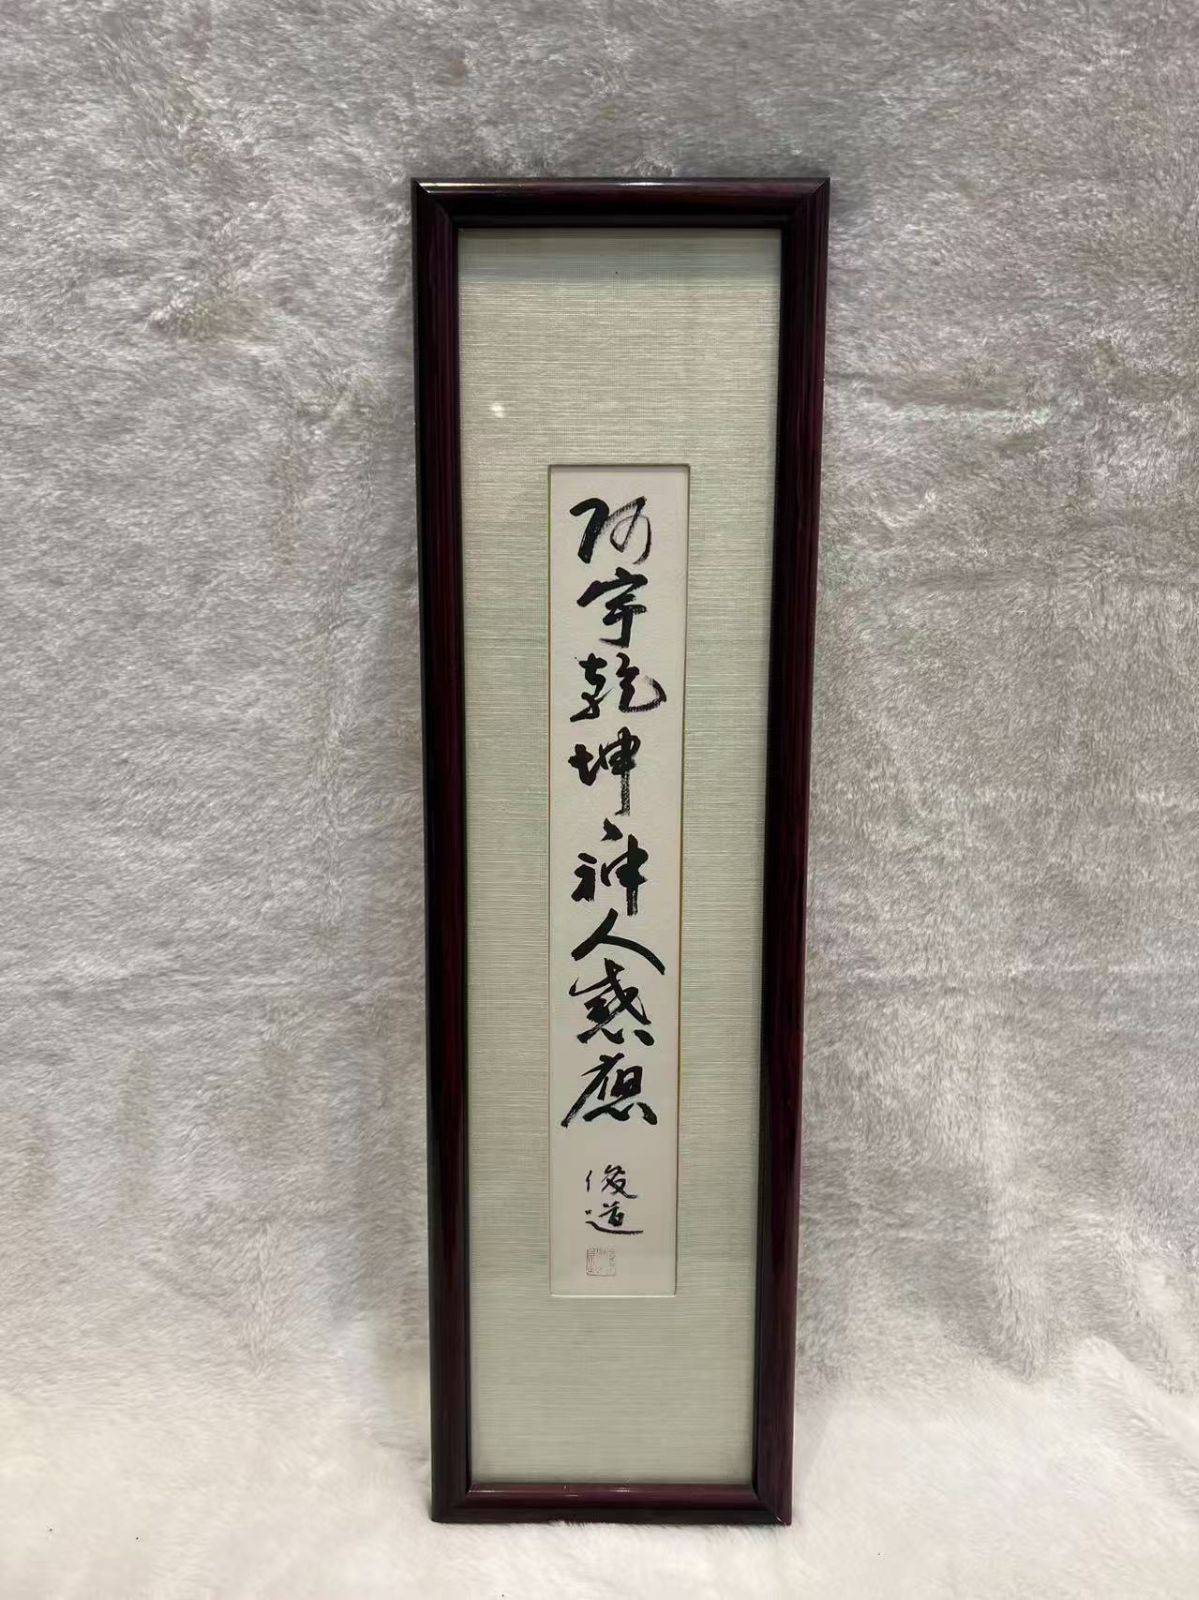 阿字乾坤神人感應
俊道